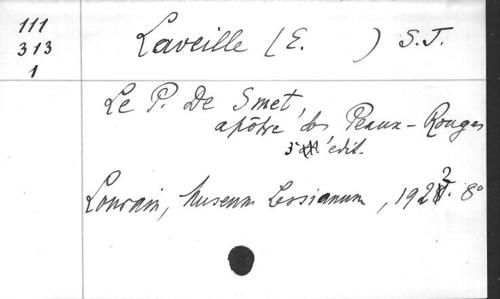 111
313
1
Laveille (E. ) S.J.
Le P. De Smet,
apôtre des Peaux-Rouges
3e édit.
Louvain, Museum Lessianum, 1922. 8°